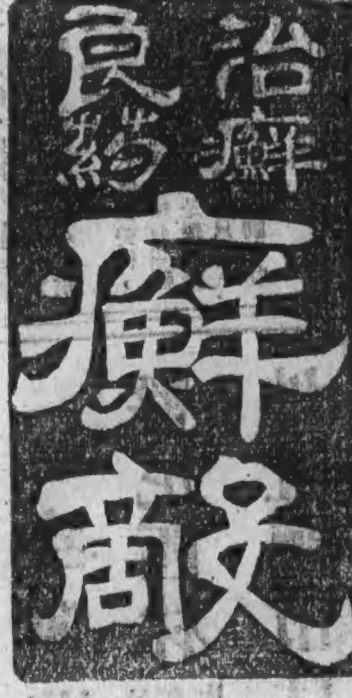 治癬
良药
癬敵